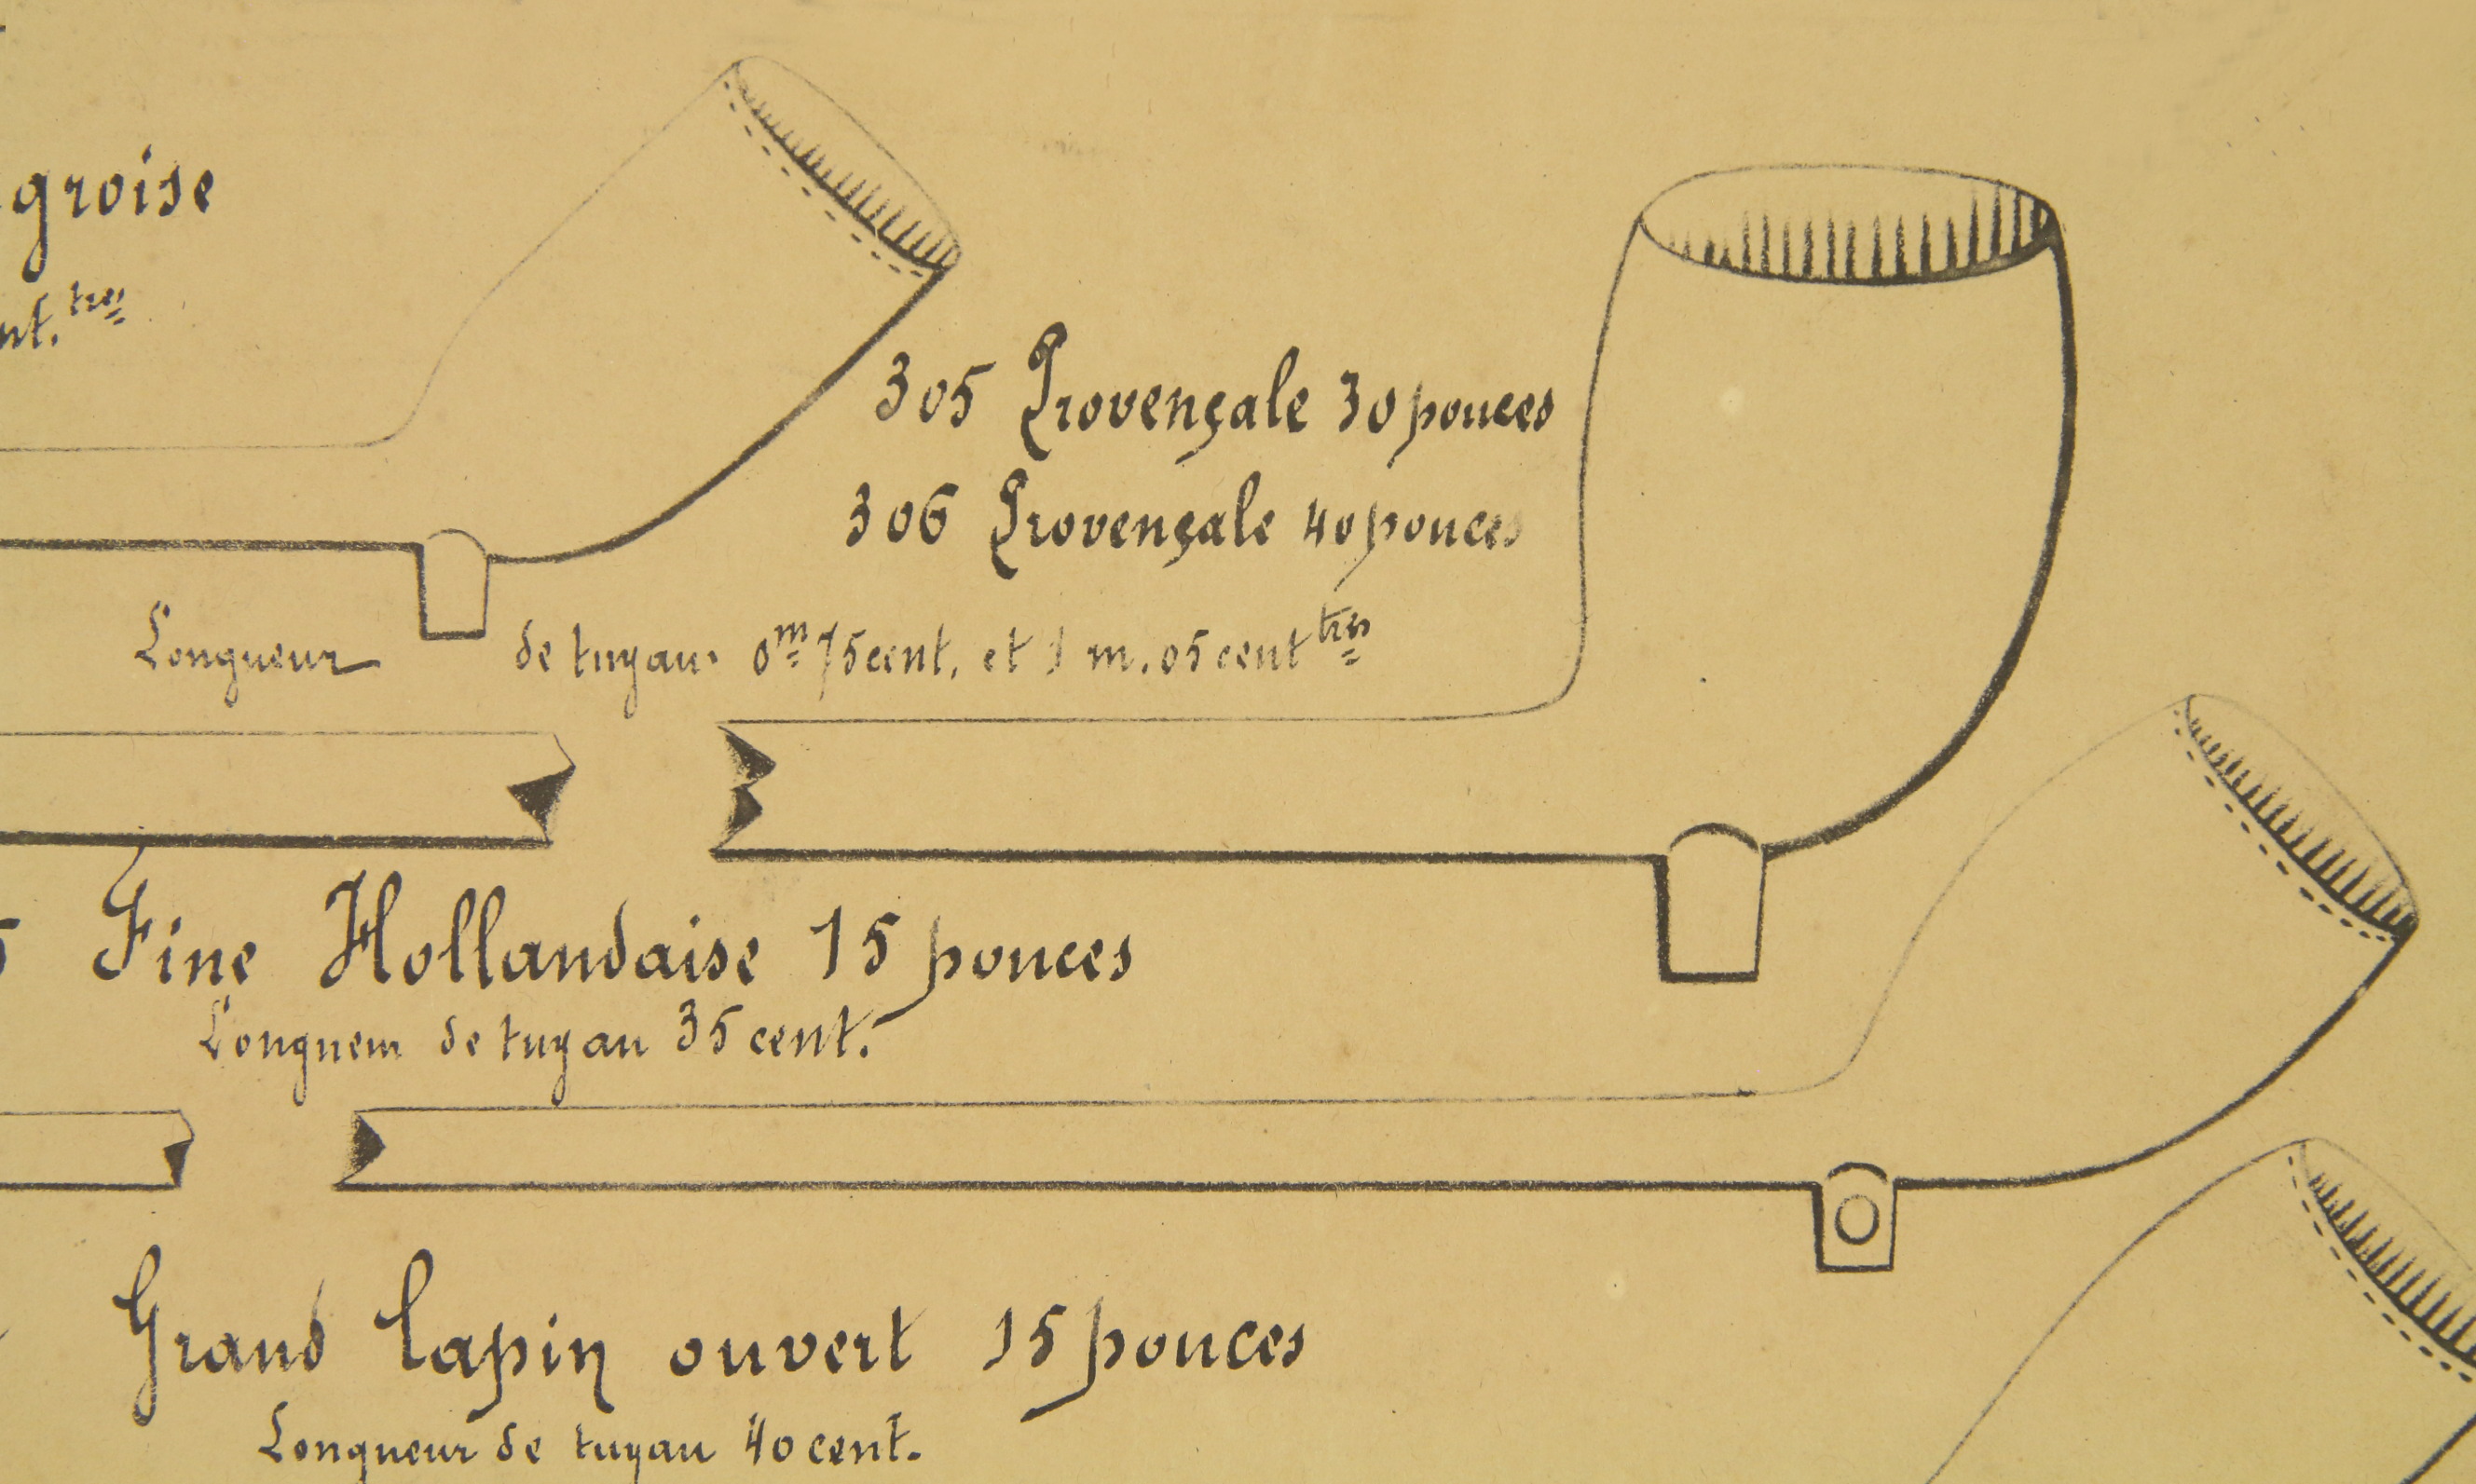 groise
nt. tres
305 Provençale 30 pouces
306 Provençale 40 pouces
Longueur de tuyau 0m 75 cent. et 1 m. 05 cent tres
5 Fine Hollandaise 15 pouces
Longueur de tuyau 35 cent.
Grand Lapin ouvert 15 pouces
Longueur de tuyau 40 cent.